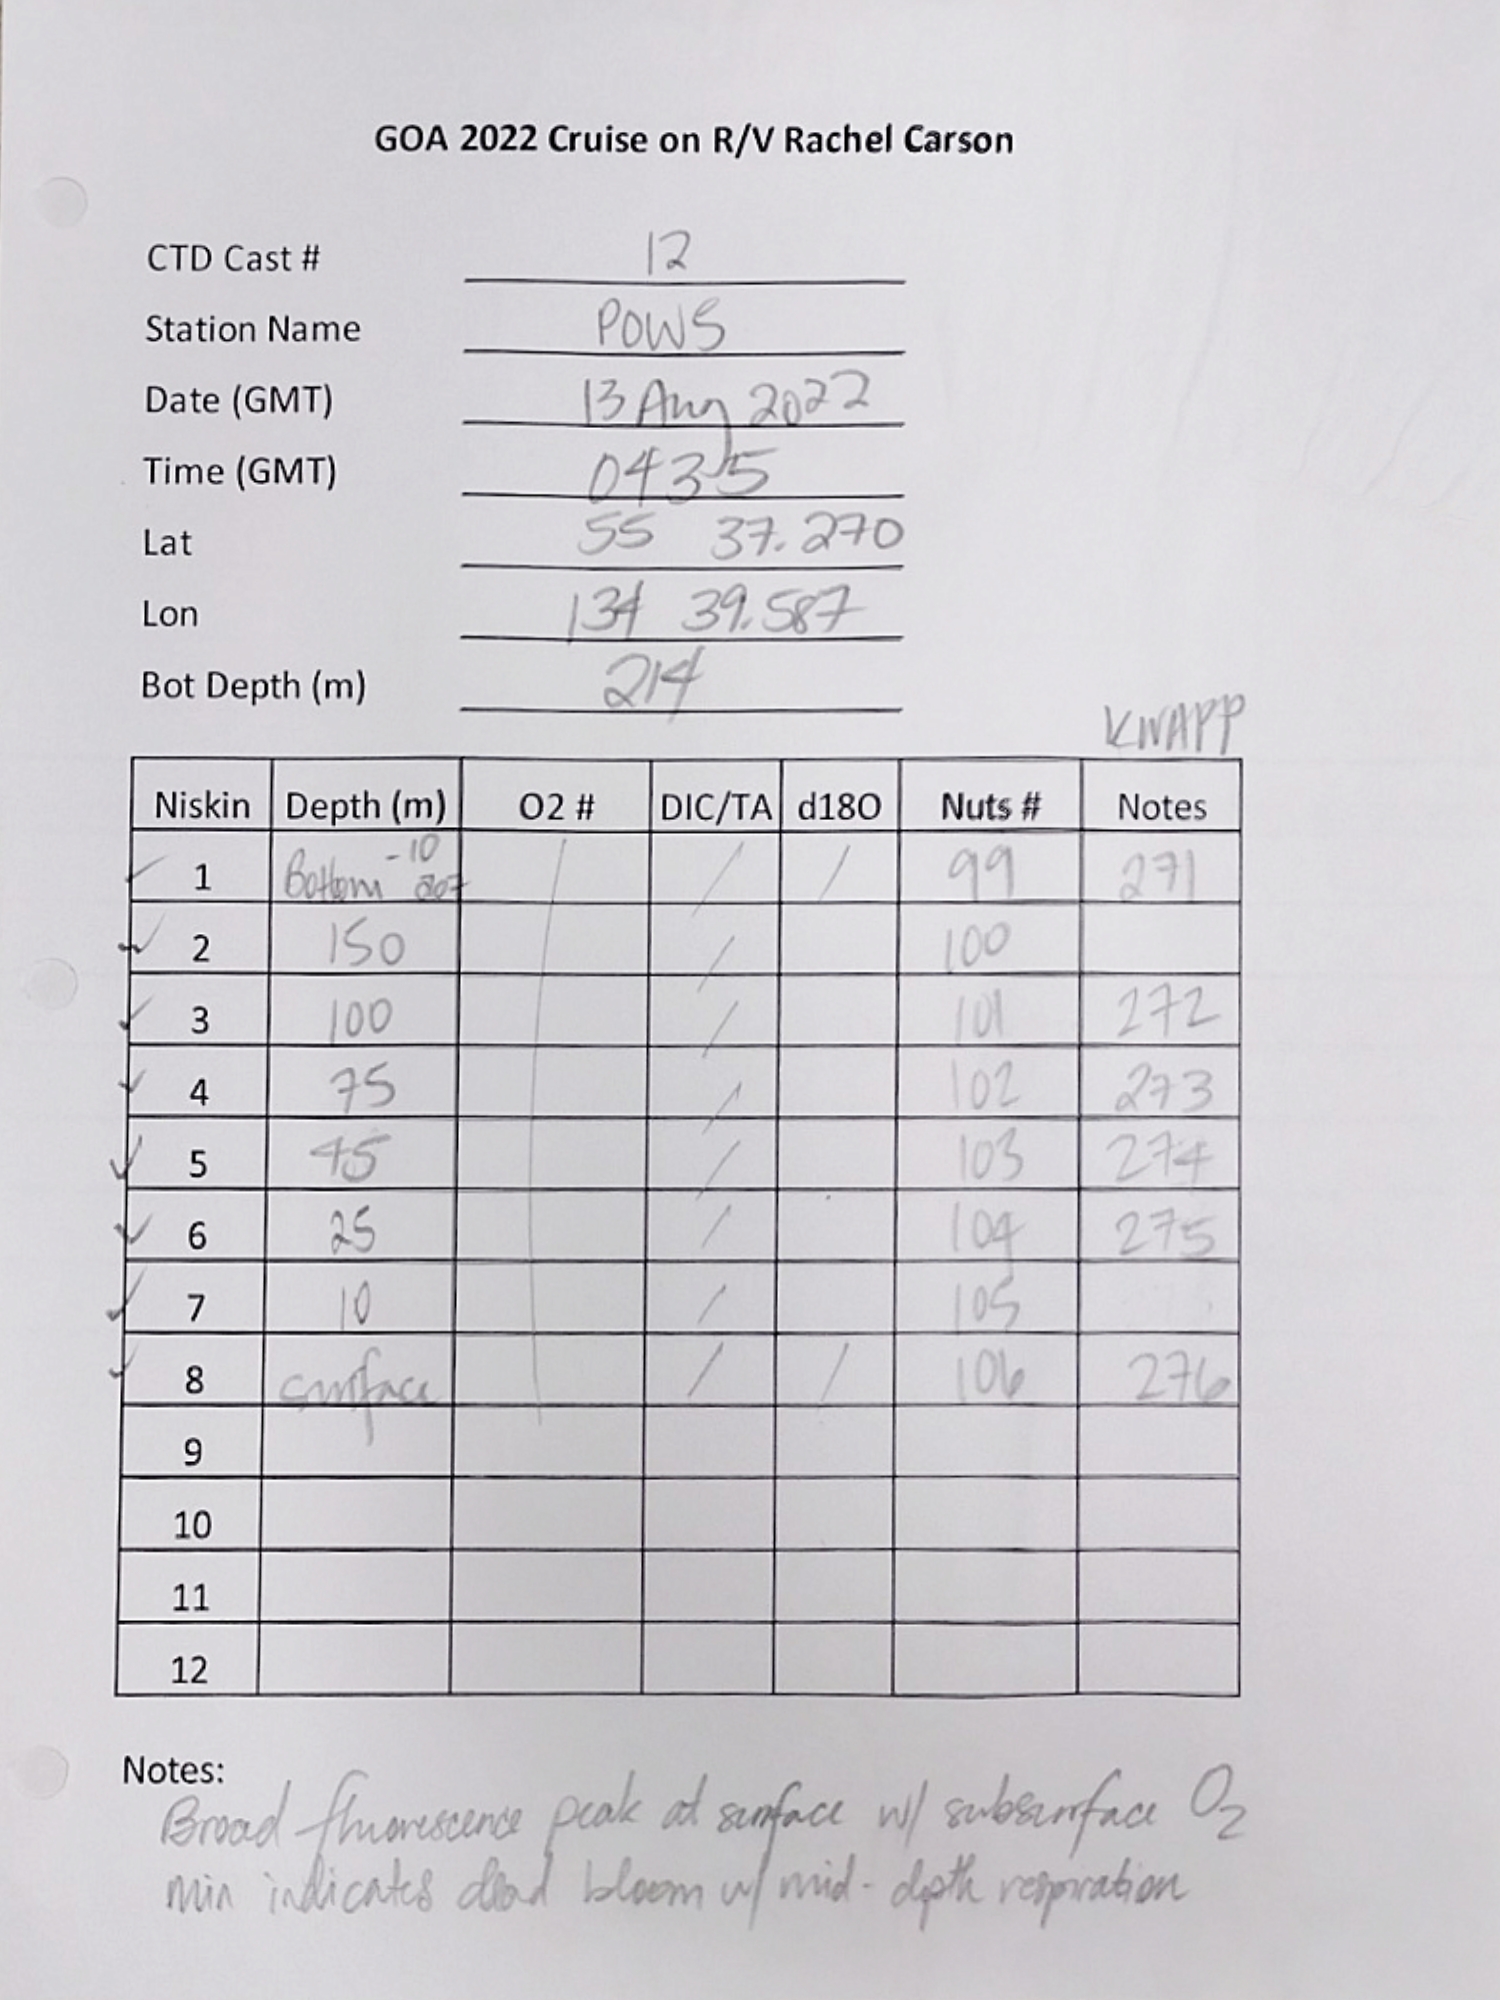 GOA 2022 Cruise on R/V Rachel Carson
CTD Cast # 12
Station Name POWS
Date (GMT) 13 Aug 2022
Time (GMT) 0435
Lat 55 37.270
Lon 134 39.587
Bot Depth (m) 214
KNAPP
Niskin Depth (m) O2 # DIC/TA d18O Nuts # Notes
✓ 1 Bottom -10 207 / / 99 271
✓ 2 150 / 100
✓ 3 100 / 101 272
✓ 4 75 / 102 273
✓ 5 45 / 103 274
✓ 6 25 / 104 275
✓ 7 10 / 105
✓ 8 surface / / 106 276
9
10
11
12
Notes:
Broad fluorescence peak at surface w/ subsurface O2
min indicates dead bloom w/ mid-depth respiration